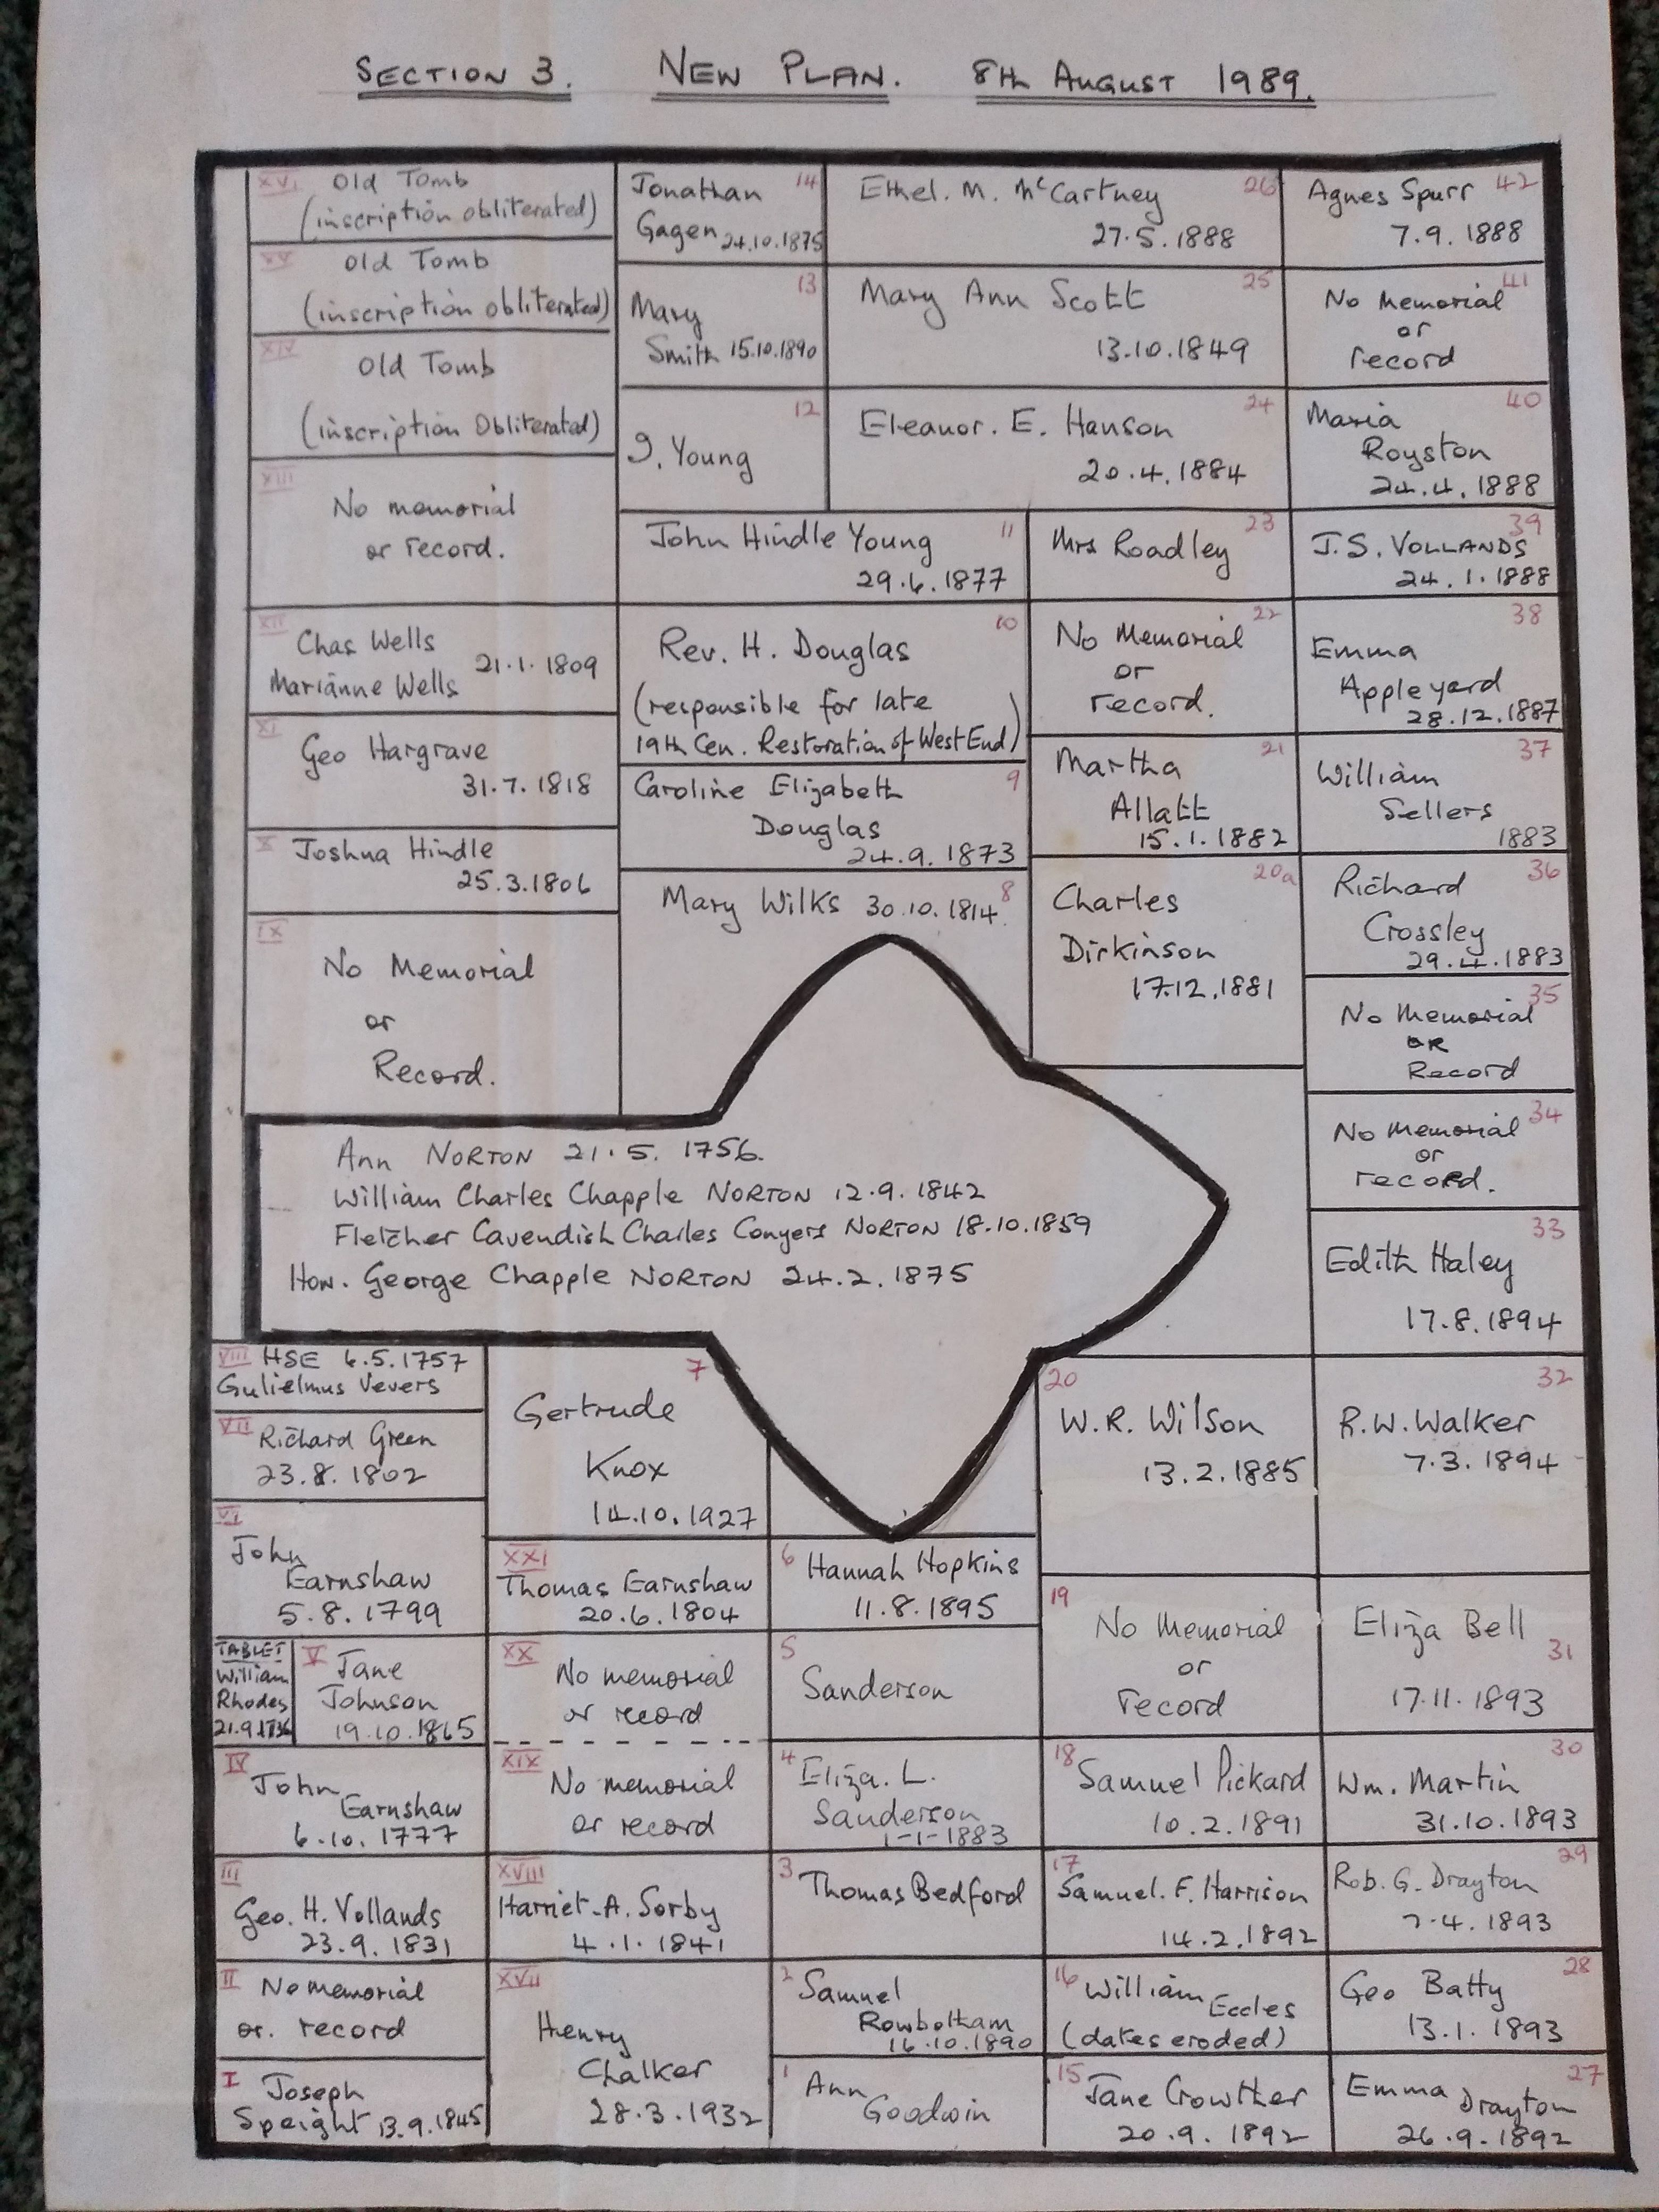 SECTION 3. NEW PLAN. 8TH AUGUST 1989.
XVI Old Tomb
(inscription obliterated)
XV Old Tomb
(inscription obliterated)
XIV
Old Tomb
(inscription Obliterated)
XIII
No memorial
or record.
XII
Chas Wells
Marianne Wells 21.1.1809
XI
Geo Hargrave
31.7.1818
X Joshua Hindle
25.3.1806
IX
No Memorial
or
Record.
Jonathan 14
Gagen 24.10.1875
13
Mary
Smith 15.10.1890
12
J. Young
Ethel. M. McCartney 26
27.5.1888
Mary Ann Scott 25
13.10.1849
Eleanor. E. Hanson 24
20.4.1884
Agnes Spurr 42
7.9.1888
41
No Memorial
or
record
40
Maria
Royston
24.4.1888
John Hindle Young 11
29.6.1877
Mrs Roadley 23
39
J.S. VOLLANDS
24.1.1888
10
Rev. H. Douglas
(responsible for late
19th Cen. Restoration of West End)
22
No Memorial
or
record.
38
Emma
Appleyard
28.12.1887
Caroline Elizabeth 9
Douglas
24.9.1873
Martha 21
Allatt
15.1.1882
37
William
Sellers
1883
Mary Wilks 30.10.1814. 8
20a
Charles
Dirkinson
17.12.1881
Richard 36
Crossley
29.4.1883
35
No Memorial
OR
Record
34
No Memorial
or
record.
33
Edith Haley
17.8.1894
Ann NORTON 21.5.1756.
William Charles Chapple NORTON 12.9.1842
Fletcher Cavendish Charles Conyers NORTON 18.10.1859
Hon. George Chapple NORTON 24.2.1875
VIII HSE 6.5.1757
Gulielmus Vevers
VII Richard Green
23.8.1802
VI
John
Earnshaw
5.8.1799
TABLET
William
Rhodes
V Jane
Johnson
19.10.1865
IV John
Earnshaw
6.10.1777
III
Geo. H. Vollands
23.9.1831
II No memorial
or. record
I Joseph
Speight 13.9.1845
7
Gertrude
Knox
14.10.1927
XXI
Thomas Earnshaw
20.6.1804
XX No memorial
or record
XIX No memorial
or record
XVIII
Harriet.A. Sorby
4.1.1841
XVII
Henry
Chalker
28.3.1932
6 Hannah Hopkins
11.8.1895
5
Sanderson
4 Eliza. L.
Sanderson
1-1-1883
3 Thomas Bedford
2 Samuel
Rowbotham
16.10.1890
1 Ann
Goodwin
20
W.R. Wilson
13.2.1885
19
No Memorial
or
record
18 Samuel Pickard
10.2.1891
17
Samuel. F. Harrison
14.2.1892
16 William Eccles
(dates eroded)
15 Jane Crowther
20.9.1892
32
R.W. Walker
7.3.1894
Eliza Bell 31
17.11.1893
30
Wm. Martin
31.10.1893
29
Rob. G. Drayton
7.4.1893
28
Geo Batty
13.1.1893
Emma 27
Drayton
26.9.1892